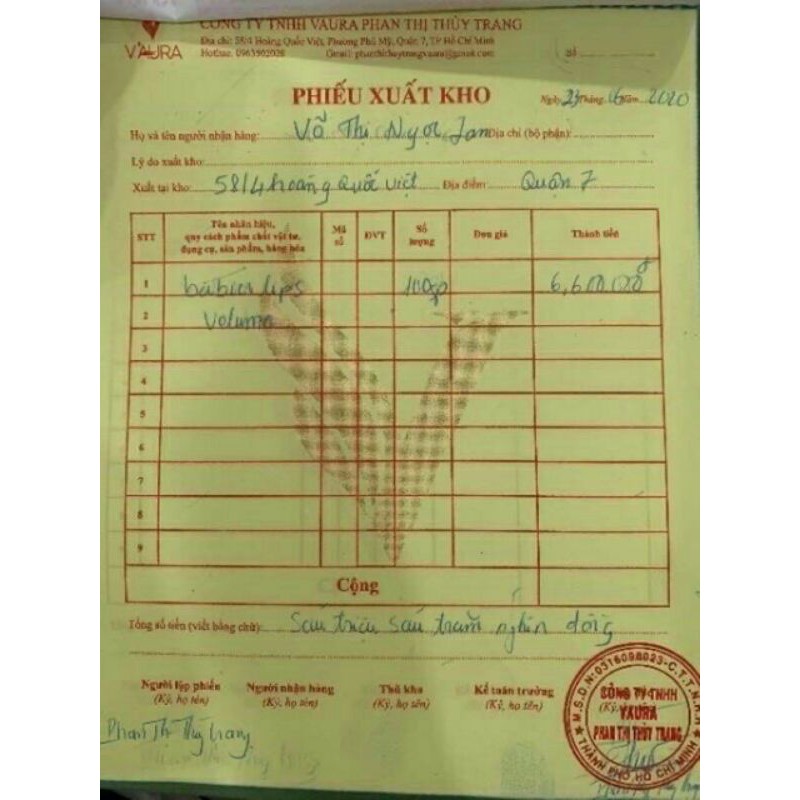 CÔNG TY TNHH VAURA PHAN THỊ THÙY TRANG
Địa chỉ: 58/4 Hoàng Quốc Việt, Phường Phú Mỹ, Quận 7, TP Hồ Chí Minh
V'AURA
Hotline: 0963502028 Gmail: phanthithuytrangvaura@gmail.com
Số
PHIẾU XUẤT KHO
Ngày 23 Tháng 06 Năm 2020
Họ và tên người nhận hàng: Võ Thị Ngọc Lan Địa chỉ (bộ phận):
Lý do xuất kho:
Xuất tại kho: 58/4 hoàng Quốc Việt Địa điểm: Quận 7
STT Tên nhãn hiệu, quy cách phẩm chất vật tư, dụng cụ, sản phẩm, hàng hóa Mã số ĐVT Số lượng Đơn giá Thành tiền
1 lips 6,600.000đ
2 Volume
3
4
5
6
7
8
9
Cộng
Tổng số tiền (viết bằng chữ): Sáu triệu sáu trăm nghìn đồng
Người lập phiếu Người nhận hàng Thủ kho Kế toán trưởng
(Ký, họ tên) (Ký, họ tên) (Ký, họ tên) (Ký, họ tên)
Phan Thị Thùy Trang
M.S.D.N:0316098023-C.T.T.N.H.H
CÔNG TY TNHH
VAURA
PHAN THỊ THÙY TRANG
THÀNH PHỐ HỒ CHÍ MINH